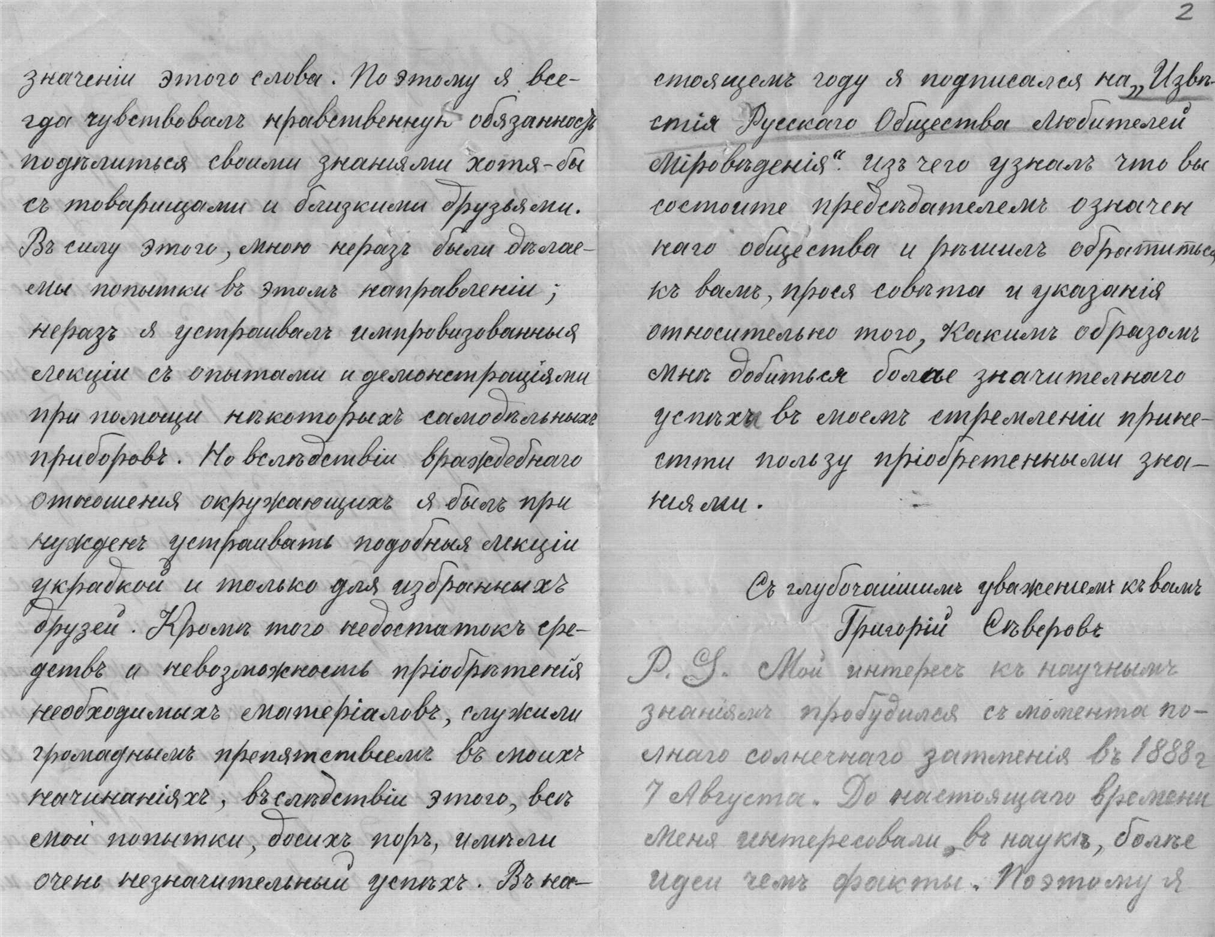 2
значеніи этого слова. Поэтому я все-
гда чувствовалъ нравственную обязанность
подѣлиться своими знаніями хотя-бы
съ товарищами и близкими друзьями.
Въ силу этого, мною неразъ были дѣлае-
мы попытки въ этомъ направленіи;
неразъ я устраивалъ импровизованныя
лекціи съ опытами и демонстраціями
при помощи нѣкоторыхъ самодѣльныхъ
приборовъ. Но вслѣдствіи враждебнаго
отношенія окружающихъ я былъ при
нужденъ устраивать подобныя лекціи
украдкой и только для избранныхъ
друзей. Кромѣ того недостатокъ сре-
дствъ и невозможность пріобрѣтенія
необходимыхъ матеріаловъ, служили
громаднымъ препятствіемъ въ моихъ
начинаніяхъ, въслѣдствіи этого, всѣ
мои попытки, досихъ поръ, имѣли
очень незначительный успѣхъ. Въ на-
стоящемъ году я подписался на „Извѣ-
стія Русскаго Общества Любителей
Міровѣденія". изъ чего узналъ что вы
состоите предсѣдателемъ означен
наго общества и рѣшилъ обратиться
къ вамъ, прося совѣта и указанія
относительно того, Какимъ образомъ
мнѣ добиться болѣе значителнаго
успѣха въ моемъ стремленіи прине-
стти пользу пріобретенными зна-
ніями.
Съ глубочайшимъ уваженіемъ къ вамъ
Григорій Сѣверовъ
P. S. Мой интересъ къ научнымъ
знаніямъ пробудился съ момента по-
лнаго солнечнаго затменія въ 1888 г
7 Августа. До настоящаго времени
меня интересовали, въ наукѣ, болѣе
идеи чемъ факты. Поэтому я